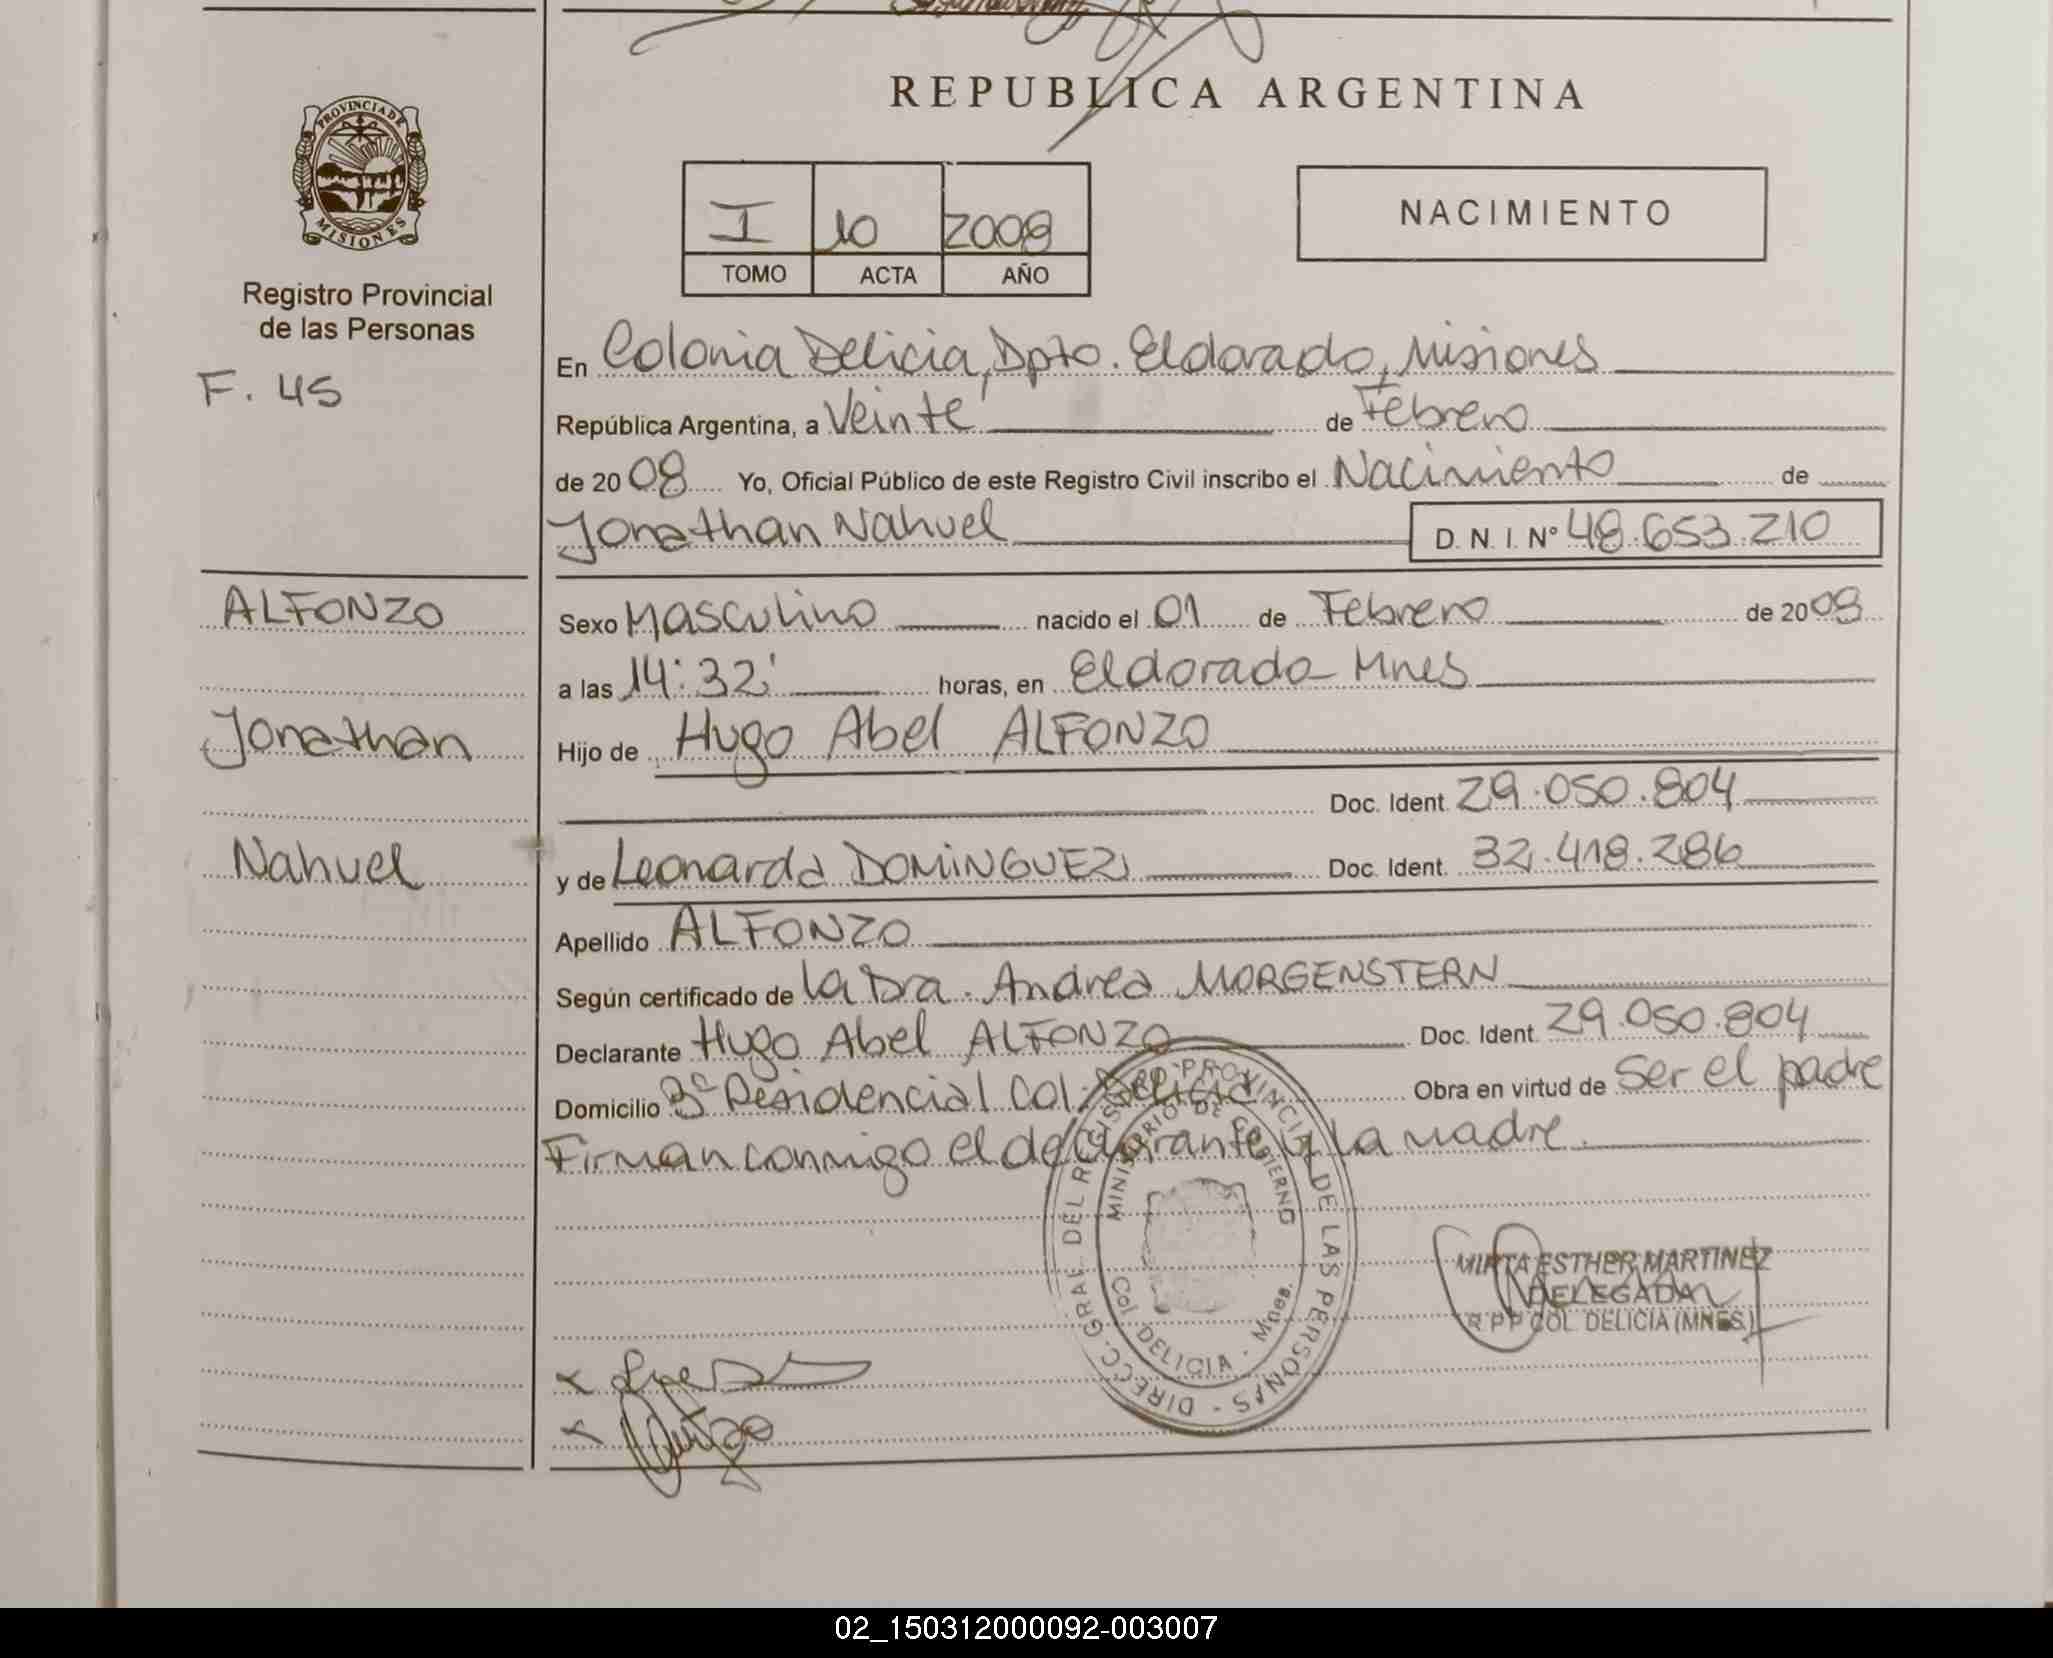 REPUBLICA ARGENTINA
PROVINCIA DE
MISIONES
Registro Provincial
de las Personas
F. 45
I 10 2008
TOMO ACTA AÑO
NACIMIENTO
En Colonia Delicia, Dpto. Eldorado, Misiones
República Argentina, a Veinte de Febrero
de 2008 Yo, Oficial Público de este Registro Civil inscribo el Nacimiento de
Jonathan Nahuel D. N. I. Nº 48.653.210
ALFONZO
Jonathan
Nahuel
Sexo Masculino nacido el 01 de Febrero de 2008
a las 14:32' horas, en Eldorado Mnes
Hijo de Hugo Abel ALFONZO
Doc. Ident. 29.050.804
y de Leonarda DOMINGUEZ Doc. Ident. 32.418.286
Apellido ALFONZO
Según certificado de la Dra. Andrea MORGENSTERN
Declarante Hugo Abel ALFONZO Doc. Ident. 29.050.804
Domicilio Bº Residencial Col. Delicia Obra en virtud de ser el padre
Firman conmigo el declarante y la madre.
DIRECC. GRAL DEL REGISTRO PROVINCIAL DE LAS PERSONAS -
MINISTERIO DE GOBIERNO
Col. DELICIA - Mnes.
MIRTA ESTHER MARTINEZ
DELEGADA
R P P COL. DELICIA (MNES.)
02_150312000092-003007